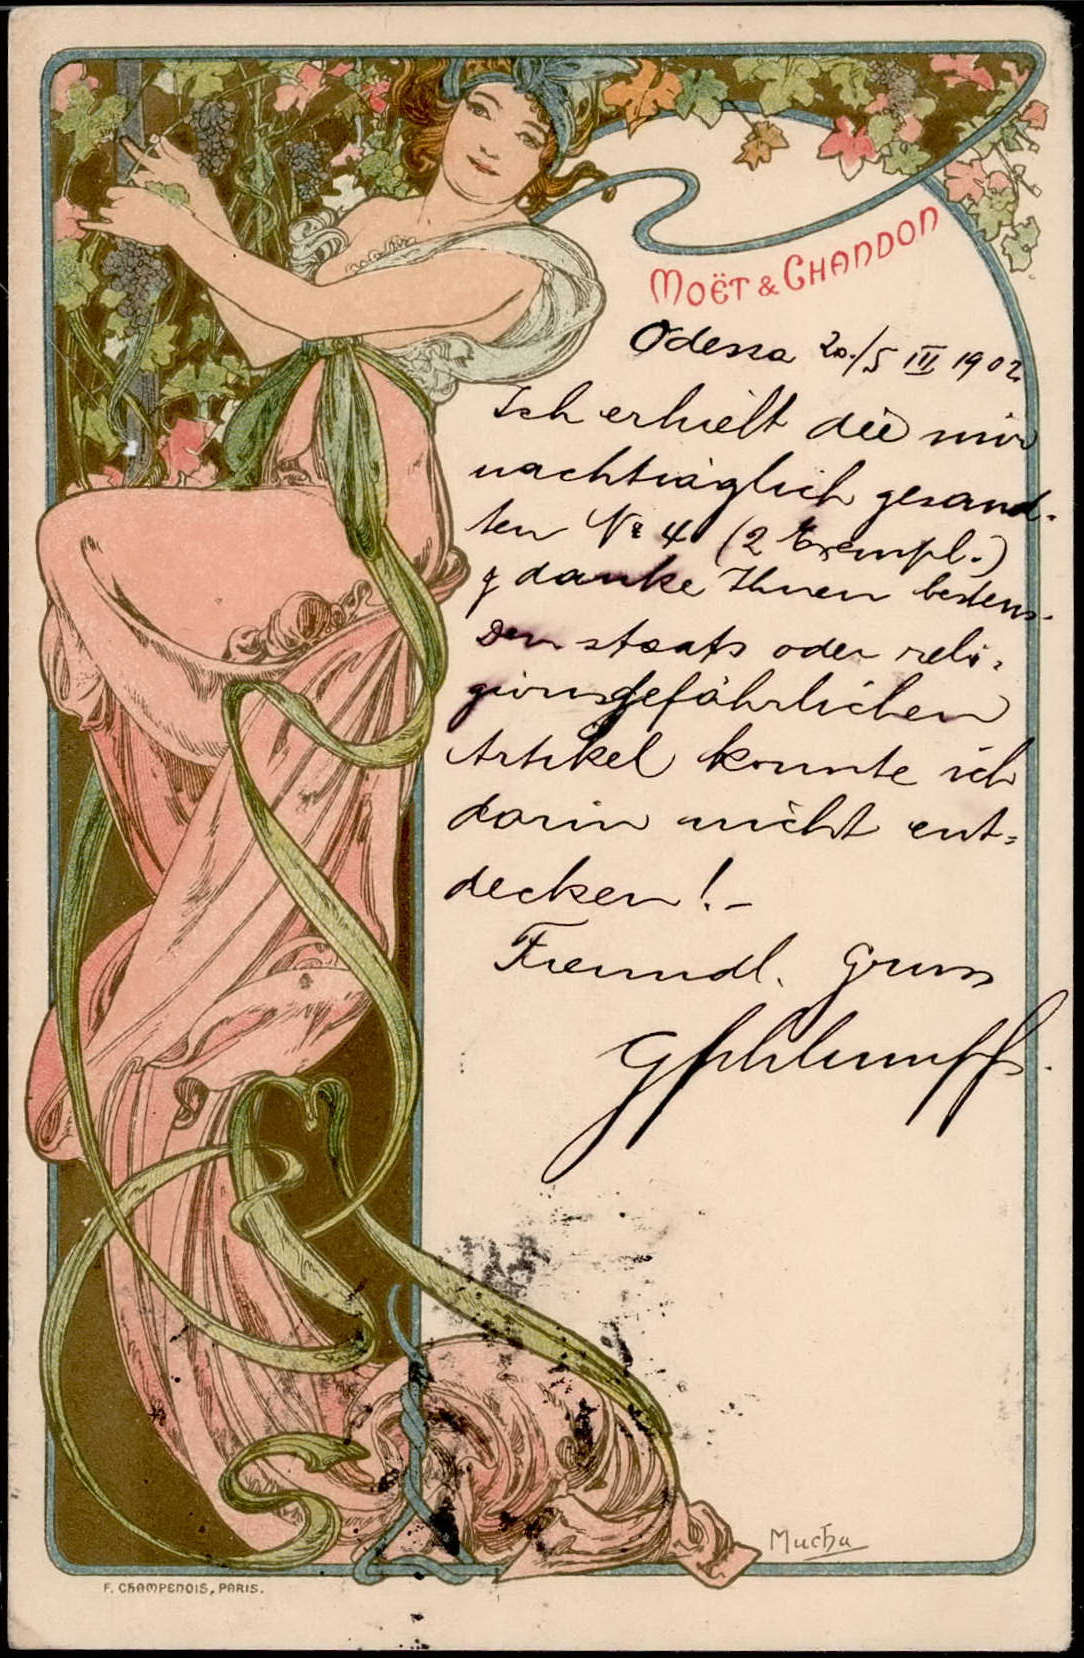 MOËT & CHANDON
Odessa 20./5 III 1902.
Ich erhielt die mir
nachträglich gesand-
ten № 4 (2 Exempl.)
& danke Ihnen bestens.
Den staats oder reli-
gionsgefährlichen
Artikel konnte ich
darin nicht ent-
decken! -
Freundl. Gruss
Mucha
F. CHAMPENOIS, PARIS.